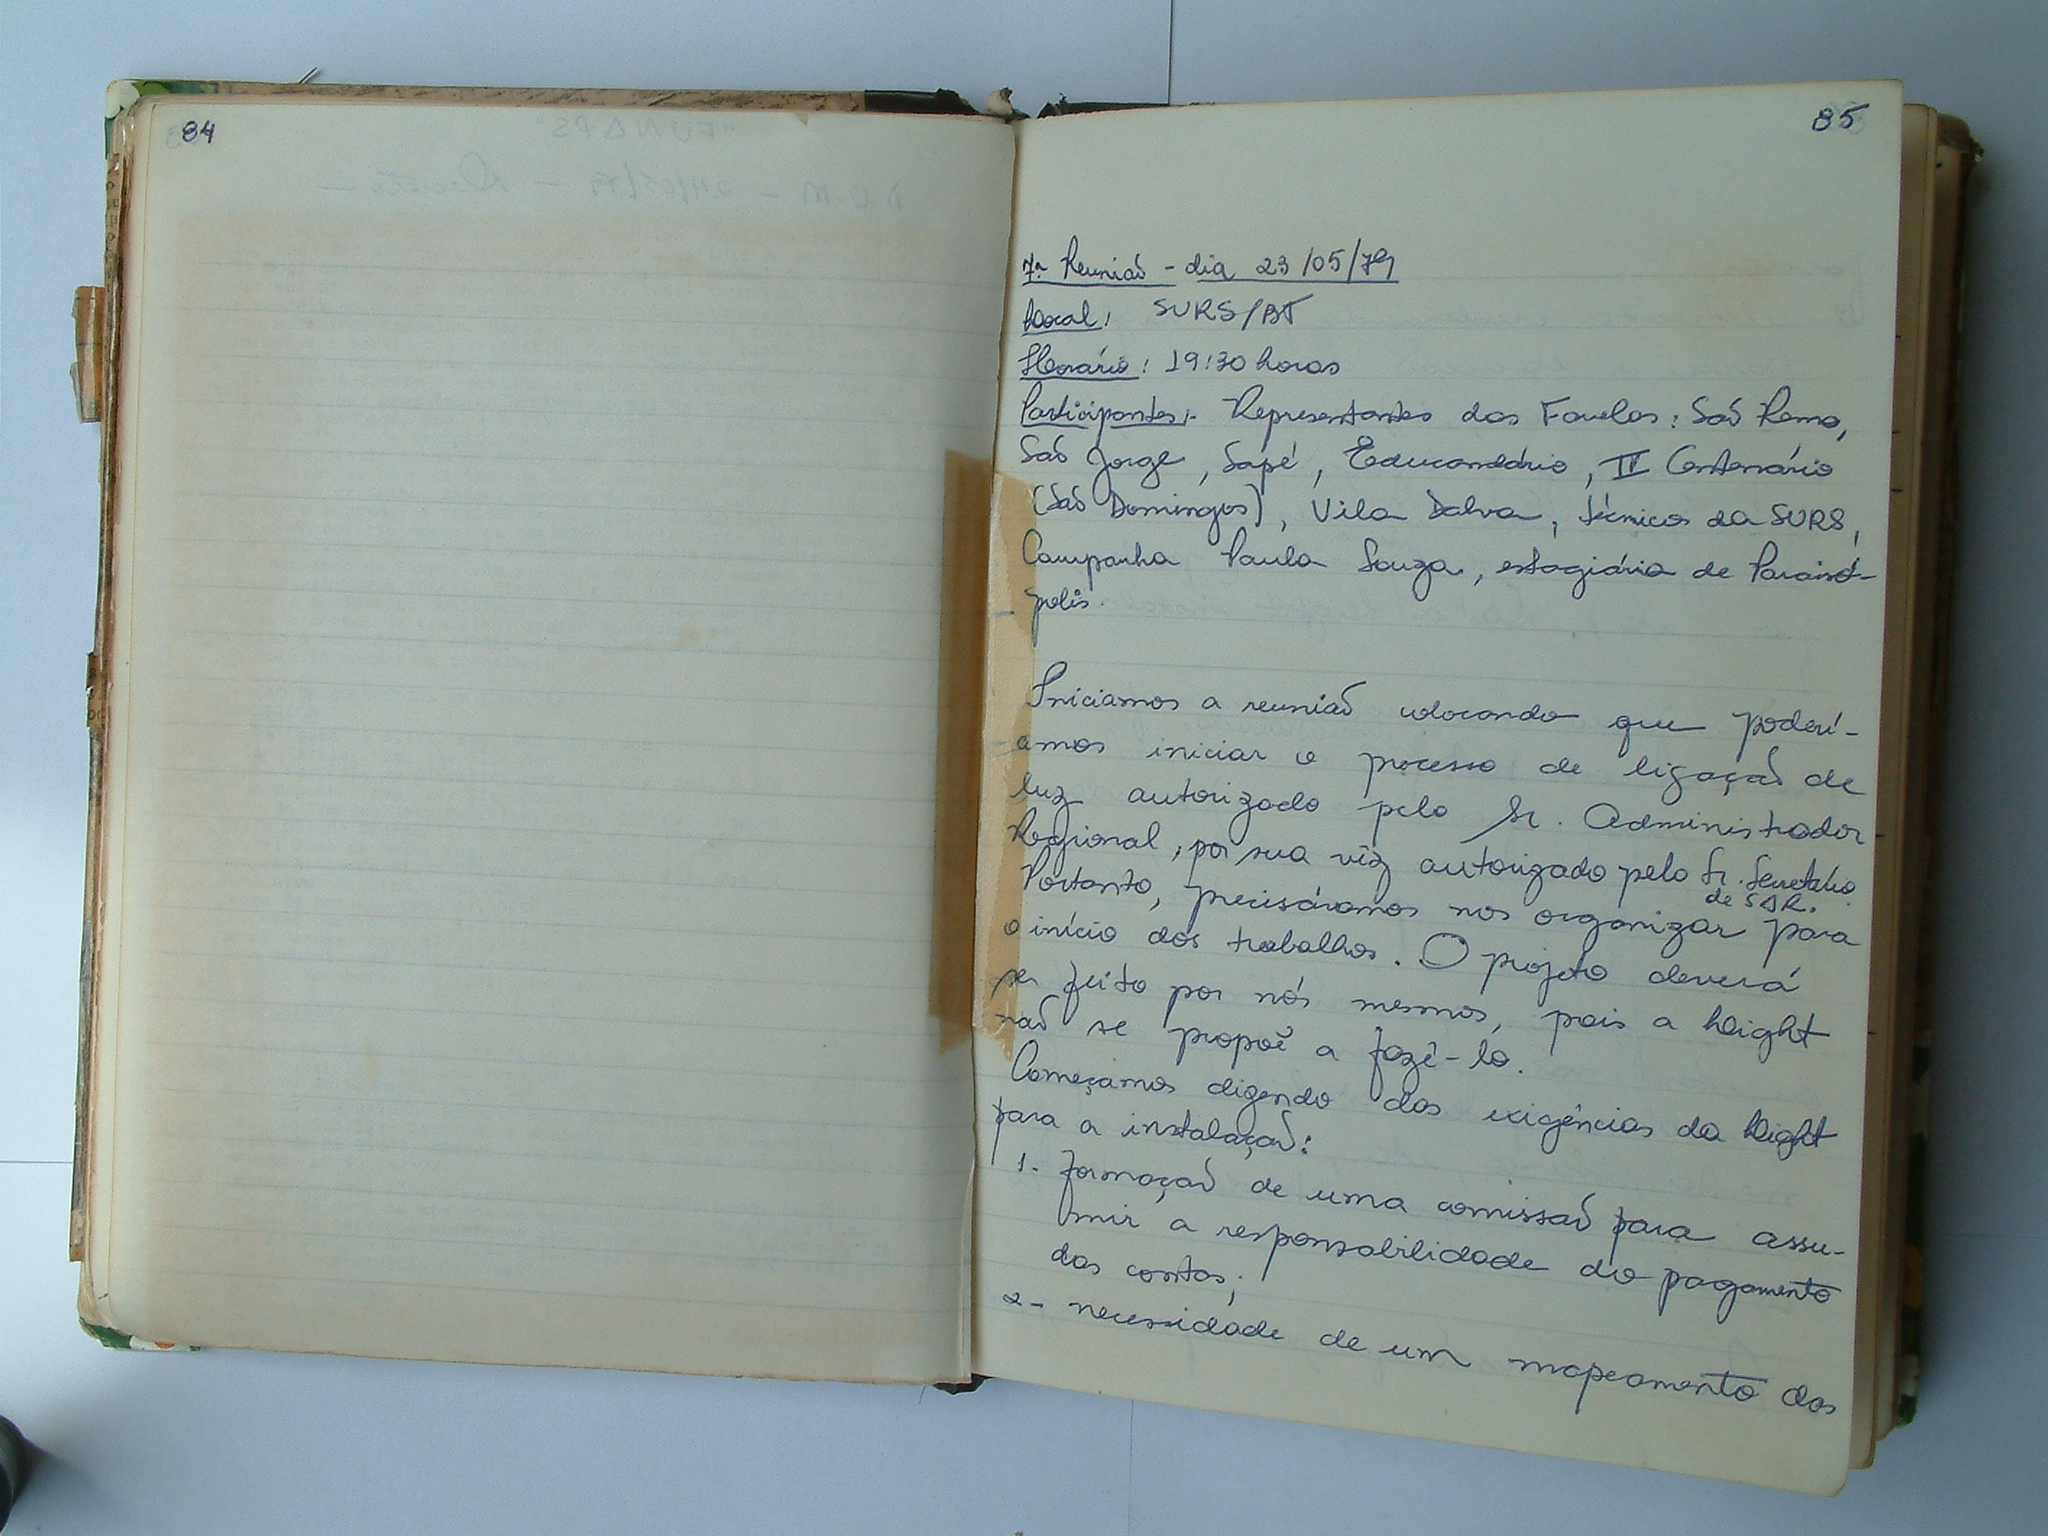 84
85
7ª Reunião - dia 23/05/79
Local: SURS/BT
Horário: 19:30 horas
Participantes:- Representantes das Favelas: São Remo,
São Jorge, Sapé, Educandário, IV Centenário
(São Domingos), Vila Dalva, técnicos da SURS,
Campanha Paula Souza, estagiária de Paraisó-
polis.
Iniciamos a reunião colocando que poderí-
amos iniciar o processo de ligação de
luz autorizado pelo Sr. Administrador
Regional, por sua vêz autorizado pelo Sr. Secretário
de SAR.
Portanto, precisávamos nos organizar para
o início dos trabalhos. O projeto deverá
ser feito por nós mesmos, pois a Light
não se propoê a fazê-lo.
Começamos dizendo das exigências da Light
para a instalação:
1- formação de uma comissão para assu-
mir a responsabilidade do pagamento
das contas;
2- necessidade de um mapeamento dos